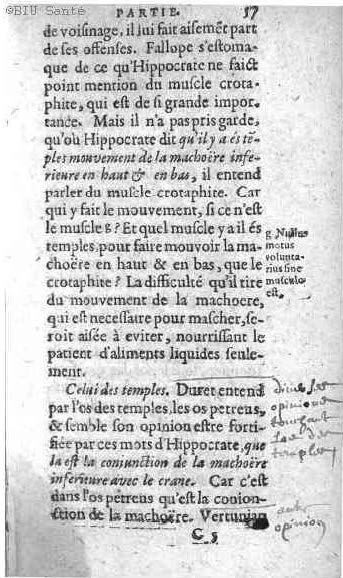 ©BIU Santé
PARTIE. 57
de voisinage, il lui fait aisemẽt part
de ses offenses. Fallope s'estoma-
que de ce qu'Hippocrate ne faict
point mention du muscle crota-
phite, qui est de si grande impor-
tance. Mais il n'a pas pris garde,
qu'où Hippocrate dit qu'il y a és tẽ-
ples mouvement de la machoëre infe-
rieure en haut & en bas, il entend
parler du muscle crotaphite. Car
qui y fait le mouvement, si ce n'est
le muscle g? Et quel muscle y a il és
temples, pour faire mouvoir la ma-
choëre en haut & en bas, que le
crotaphite? La difficulté qu'il tire
du mouvement de la machoere,
qui est necessaire pour mascher, se-
roit aisée à eviter, nourrissant le
patient d'aliments liquides seule-
ment.
g Nullus
motus
volunta-
rius sine
musculo
est.
Celui des temples. Duret entend
par l'os des temples, les os petreus,
& semble son opinion estre forti-
fiée par ces mots d'Hippocrate, que
là est la conjunction de la machoëre
inferieure avec le crane. Car c'est
dans l'os petreus qu'est la conion-
ction de la machoëre. Vertunian
opinions
touchant
des
temples
opinion
C 5